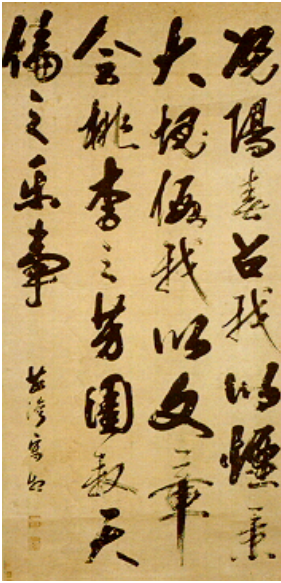 況陽春召我以煙景
大塊假我以文章
會桃李之芳園叙天
倫之樂事